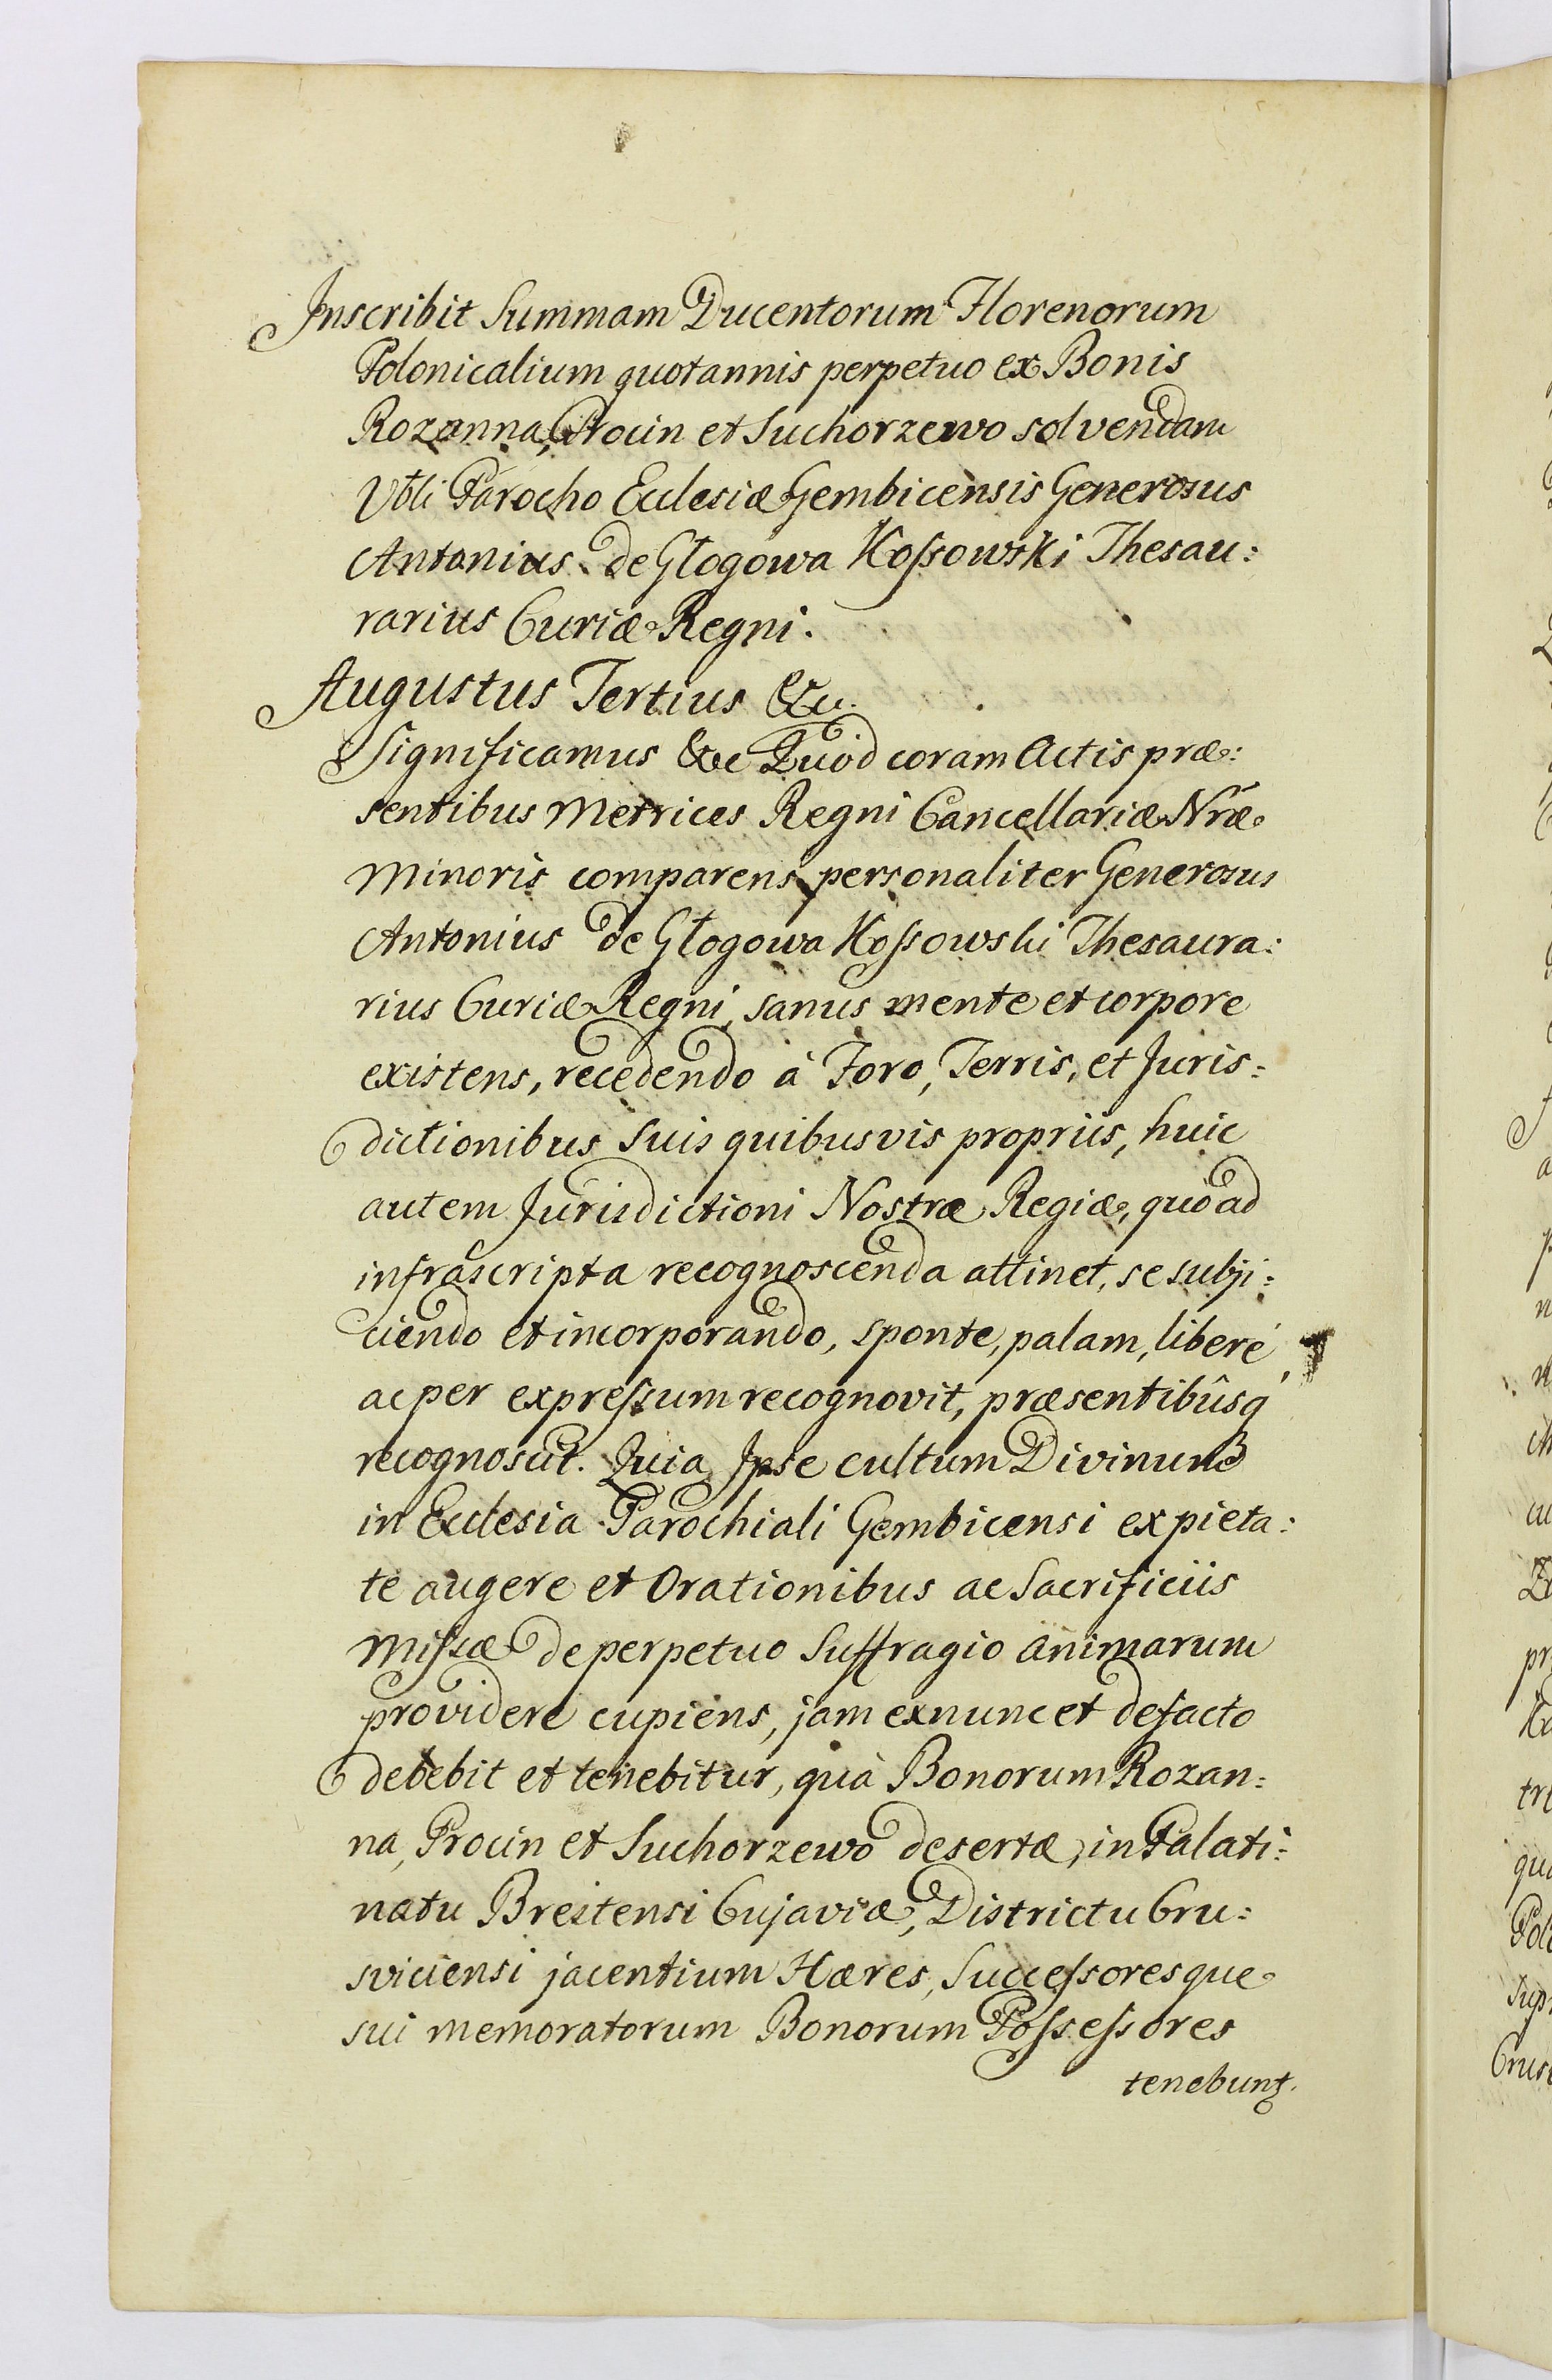 Inscribit Summam Ducentorum Florenorum
Polonicalium quotannis perpetuo ex Bonis
Rozanna, Procin et Suchorzewo solvendam
Vbli Parocho Ecclesiæ Gembicensis Generosus
Antonius de Głogowa Kossowski Thesau:
rarius Curiæ Regni.
Augustus Tertius &c.
Significamus &c Quod coram Actis præ:
sentibus Metrices Regni Cancellariæ Nræ
Minoris comparens personaliter Generosus
Antonius de Głogowa Kossowski Thesaura:
rius Curiæ Regni, sanus mente et corpore
existens, recedendo à Foro, Terris, et Juris:
dictionibus suis quibusvis propriis, huic
autem Jurisdictioni Nostræ Regiæ, quò ad
infrascripta recognoscenda attinet, se subji:
ciendo et incorporando, sponte, palam, liberé
ac per expressum recognovit, præsentibûsq'
recognoscit. Quia Ipse cultum Divinum
in Ecclesia Parochiali Gembicensi ex pieta:
te augere et Orationibus ac Sacrificiis
Missæ de perpetuo Suffragio animarum
providere cupiens, jam exnunc et defacto
debebit et tenebitur, quà Bonorum Rozan:
na, Procin et Suchorzewo desertæ, in Palati:
natu Brestensi Cujaviæ, Districtu Cru:
sviciensi jacentium Hæres, Successoresque
sui memoratorum Bonorum Possessores
tenebunt.